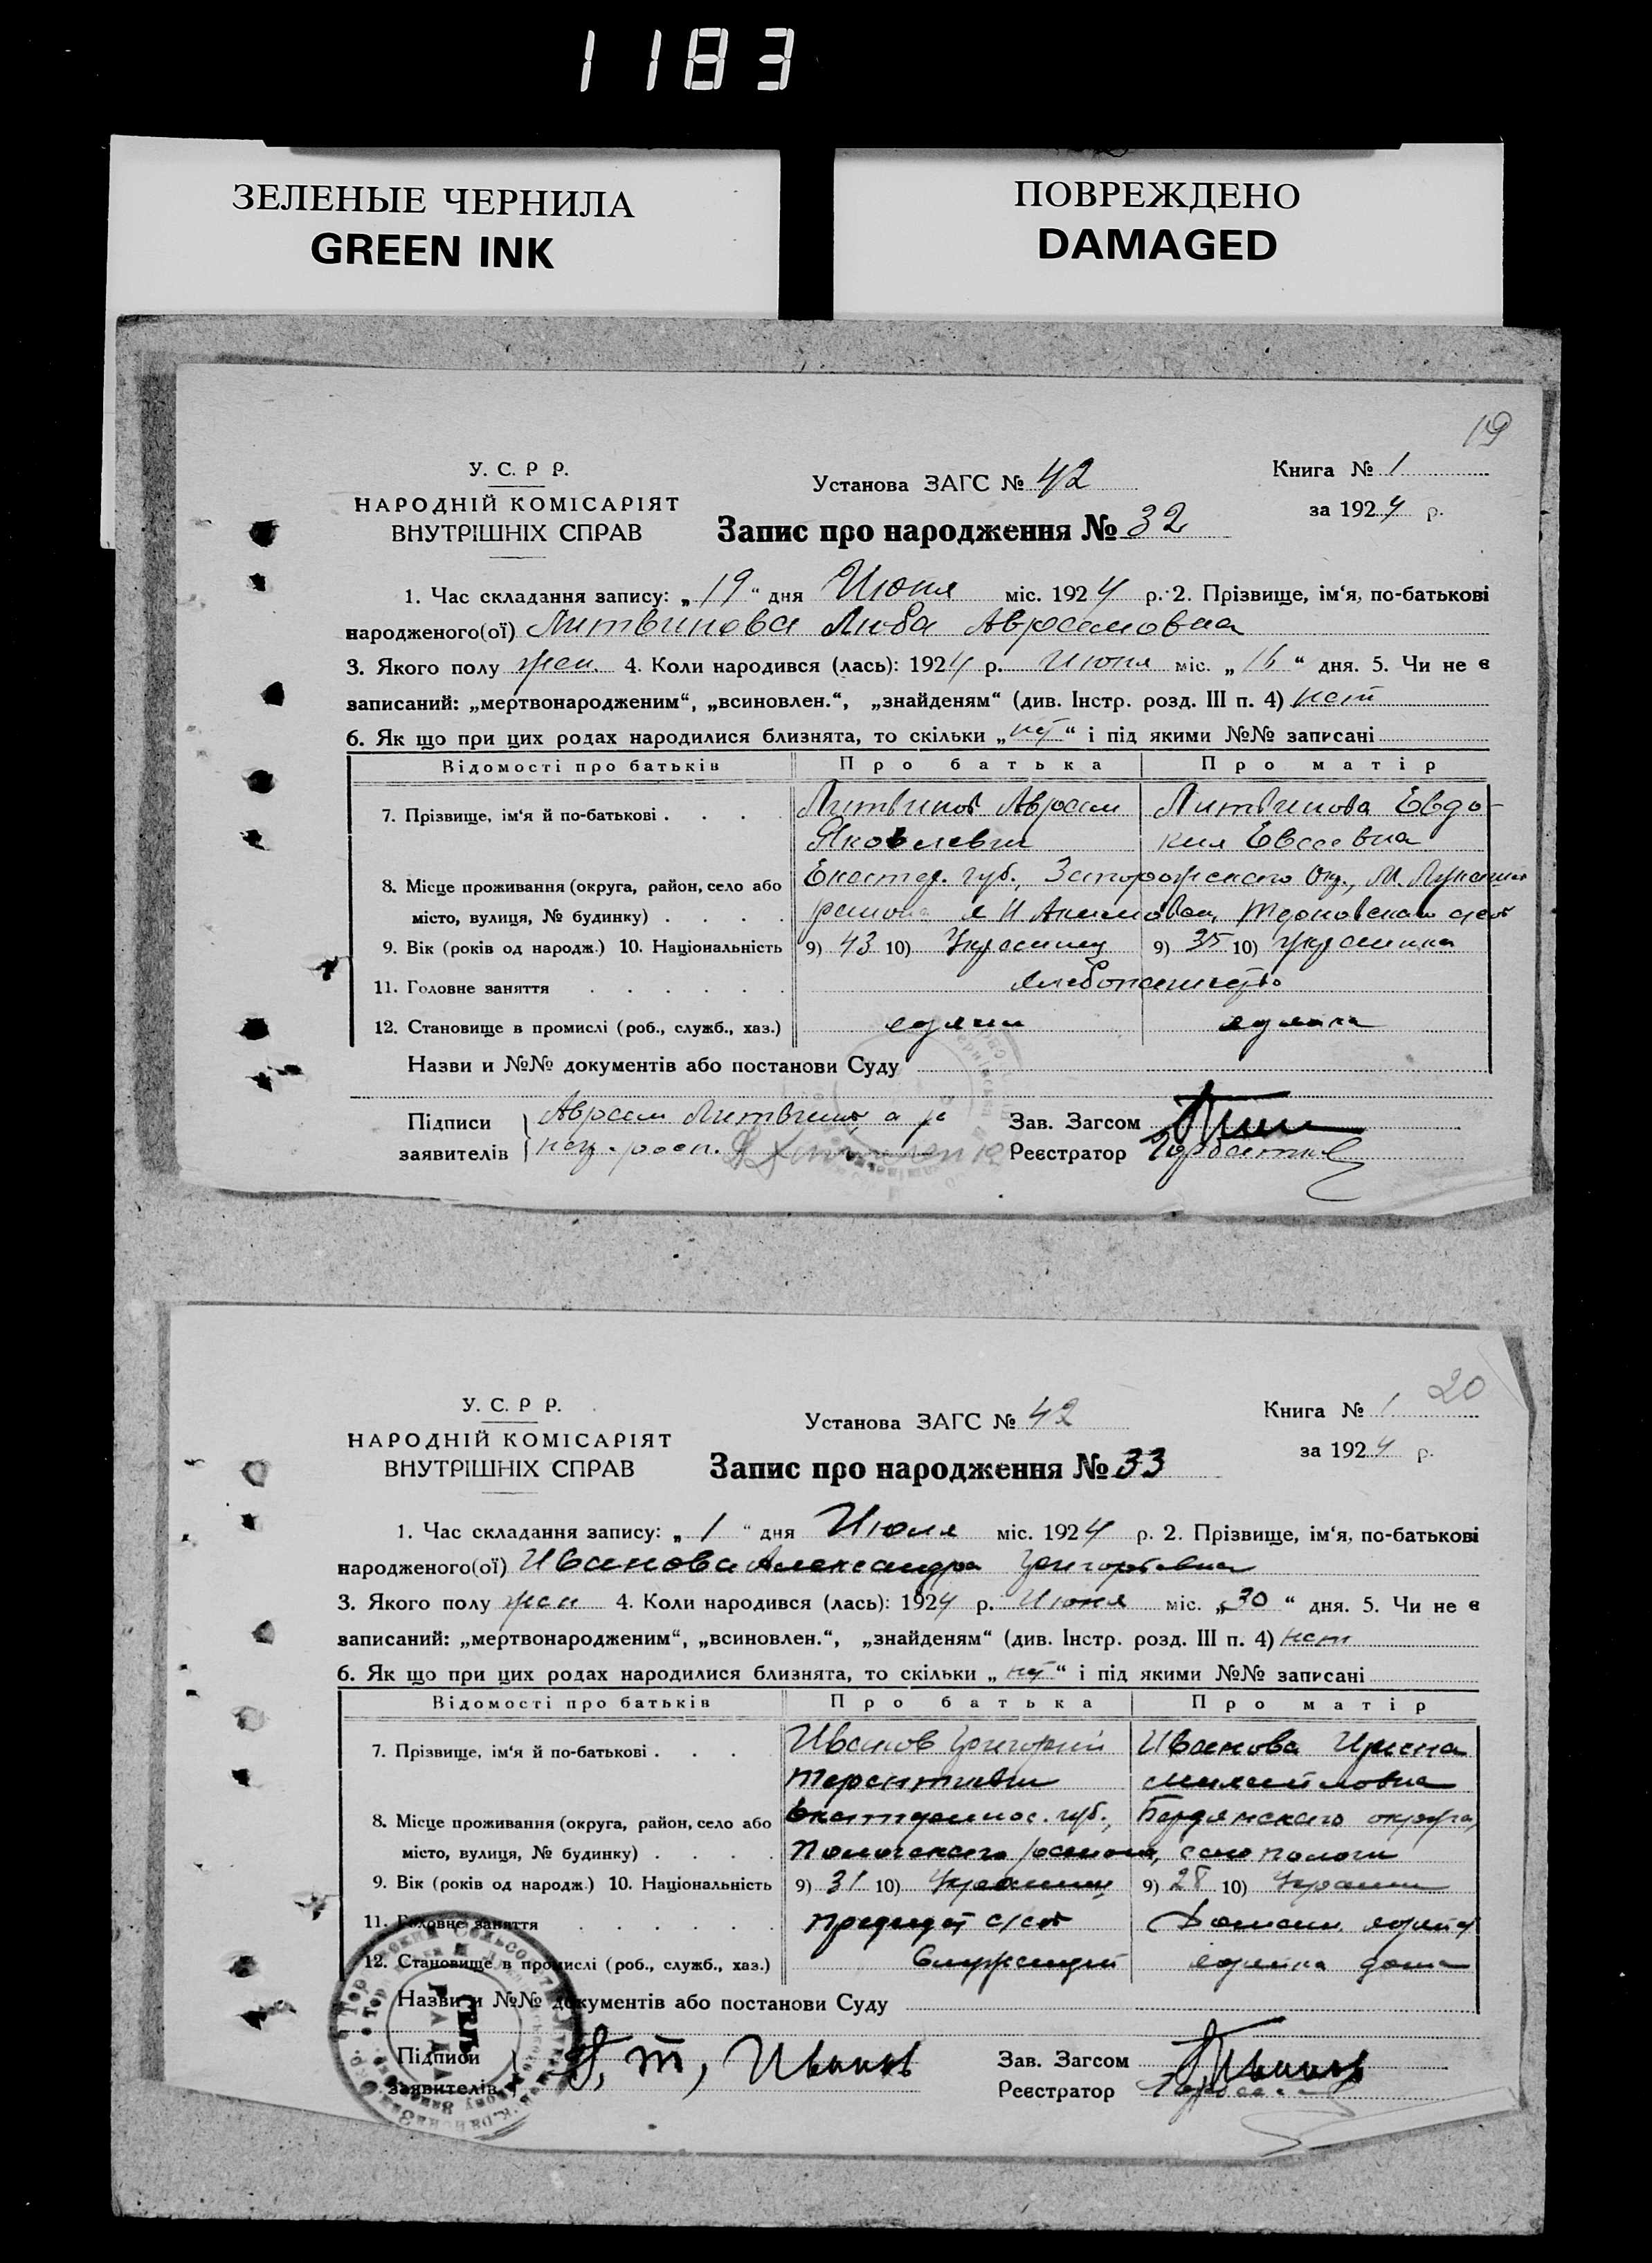 1183
ЗЕЛЕНЫЕ ЧЕРНИЛА
GREEN INK
ПОВРЕЖДЕНО
DAMAGED
19
У. С. Р Р.
НАРОДНІЙ КОМІСАРІЯТ
ВНУТРІШНІХ СПРАВ
Установа ЗАГС № 42
Книга № 1
за 1924 р.
Запис про народження № 32
1. Час складання запису: „19“ дня Июня міс. 1924 р. 2. Прізвище, ім‘я, по-батькові
народженого(ої) Литвинова Люба Авраамовна
3. Якого полу жен. 4. Коли народився (лась): 1924 р. Июня міс. „16“ дня. 5. Чи не є
записаний: „мертвонародженим“, „всиновлен.“, „знайденям“ (див. Інстр. розд. III п. 4) нет
6. Як що при цих родах народилися близнята, то скільки „нет“ і під якими №№ записані
Відомості про батьків Про батька Про матір
7. Прізвище, ім‘я й по-батькові . . . . Литвинов Авраам Литвинова Евдо-
Яковлевич кия Евсеевна
8. Місце проживання (округа, район, село або Екатер. губ., Запорожского Окр.,
місто, вулиця, № будинку) . . . . района
9. Вік (років од народж.) 10. Національність 9) 43 10) Украинец 9) 35 10) украинка
11. Головне заняття . . . . . . хлебопашество
12. Становище в промислі (роб., служб., хаз.)
Назви и №№ документів або постанови Суду
Підписи Авраам Литвинов, а за
заявителів нег. росп.
Зав. Загсом
Реєстратор
20
У. С. Р Р.
НАРОДНІЙ КОМІСАРІЯТ
ВНУТРІШНІХ СПРАВ
Установа ЗАГС № 42
Книга № 1
за 1924 р.
Запис про народження № 33
1. Час складання запису: „1“ дня Июля міс. 1924 р. 2. Прізвище, ім‘я, по-батькові
народженого(ої) Иванова Александра Григорьевна
3. Якого полу жен 4. Коли народився (лась): 1924 р. Июня міс. „30“ дня. 5. Чи не є
записаний: „мертвонародженим“, „всиновлен.“, „знайденям“ (див. Інстр. розд. III п. 4) нет
6. Як що при цих родах народилися близнята, то скільки „нет“ і під якими №№ записані
Відомості про батьків Про батька Про матір
7. Прізвище, ім‘я й по-батькові . . . Иванов Григорий Иванова Ирина
Терентиевич Михайловна
8. Місце проживання (округа, район, село або губ., Бердянского округа,
місто, вулиця, № будинку) . . . . Пологского района, село Пологи
9. Вік (років од народж.) 10. Національність 9) 31 10) Украинец 9) 28 10) Украин
11. Головне заняття . . . . . . Домашн.
12. Становище в промислі (роб., служб., хаз.) Служащий дома
Назви и №№ документів або постанови Суду
Підписи
заявителів Г, т, Иванов
Зав. Загсом Иванов
Реєстратор